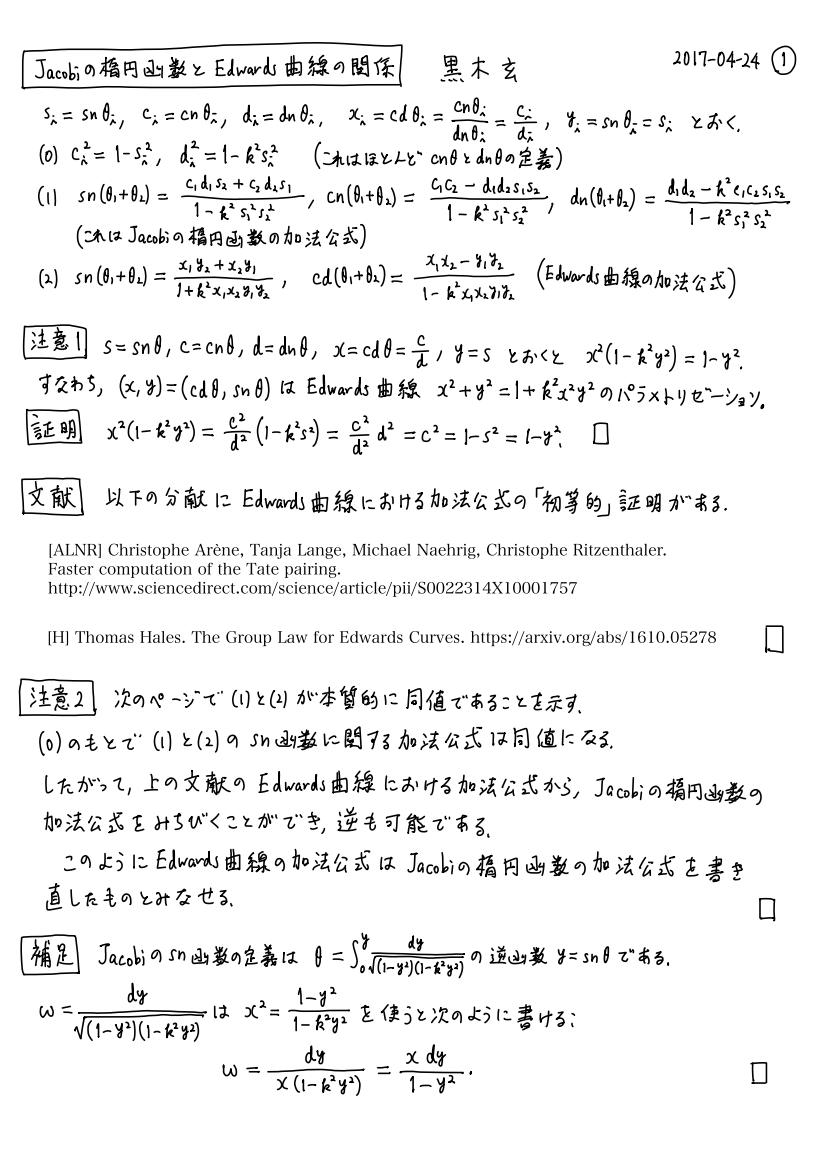 Jacobiの楕円函数とEdwards曲線の関係 黒木玄 2017-04-24 ①
sᵢ = sn θᵢ, cᵢ = cn θᵢ, dᵢ = dn θᵢ, xᵢ = cd θᵢ = cnθᵢ/dnθᵢ = cᵢ/dᵢ, yᵢ = sn θᵢ = sᵢ とおく.
(0) cᵢ² = 1-sᵢ², dᵢ² = 1-k²sᵢ² (これはほとんど cnθとdnθの定義)
(1) sn(θ₁+θ₂) = (c₁d₁s₂ + c₂d₂s₁)/(1-k²s₁²s₂²), cn(θ₁+θ₂) = (c₁c₂ - d₁d₂s₁s₂)/(1-k²s₁²s₂²), dn(θ₁+θ₂) = (d₁d₂ - k²c₁c₂s₁s₂)/(1-k²s₁²s₂²)
(これは Jacobiの楕円函数の加法公式)
(2) sn(θ₁+θ₂) = (x₁y₂ + x₂y₁)/(1+k²x₁x₂y₁y₂), cd(θ₁+θ₂) = (x₁x₂ - y₁y₂)/(1-k²x₁x₂y₁y₂) (Edwards曲線の加法公式)
注意1 s = snθ, c = cnθ, d = dnθ, x = cdθ = c/d, y = s とおくと x²(1-k²y²) = 1-y².
すなわち, (x,y) = (cdθ, snθ) は Edwards曲線 x²+y² = 1+k²x²y² のパラメトリゼーション。
証明 x²(1-k²y²) = c²/d² (1-k²s²) = c²/d² d² = c² = 1-s² = 1-y². □
文献 以下の文献に Edwards曲線における加法公式の「初等的」証明がある.
[ALNR] Christophe Arène, Tanja Lange, Michael Naehrig, Christophe Ritzenthaler.
Faster computation of the Tate pairing.
http://www.sciencedirect.com/science/article/pii/S0022314X10001757
[H] Thomas Hales. The Group Law for Edwards Curves. https://arxiv.org/abs/1610.05278 □
注意2 次のページで (1)と(2) が本質的に同値であることを示す.
(0)のもとで (1)と(2)の sn函数に関する加法公式は同値になる.
したがって, 上の文献の Edwards曲線における加法公式から, Jacobiの楕円函数の
加法公式をみちびくことができ, 逆も可能である.
このように Edwards曲線の加法公式は Jacobiの楕円函数の加法公式を書き
直したものとみなせる. □
補足 Jacobiのsn函数の定義は θ = ∫₀^y dy/√((1-y²)(1-k²y²)) の逆函数 y=snθ である.
ω = dy/√((1-y²)(1-k²y²)) は x² = (1-y²)/(1-k²y²) を使うと次のように書ける:
ω = dy/(x(1-k²y²)) = x dy/(1-y²). □